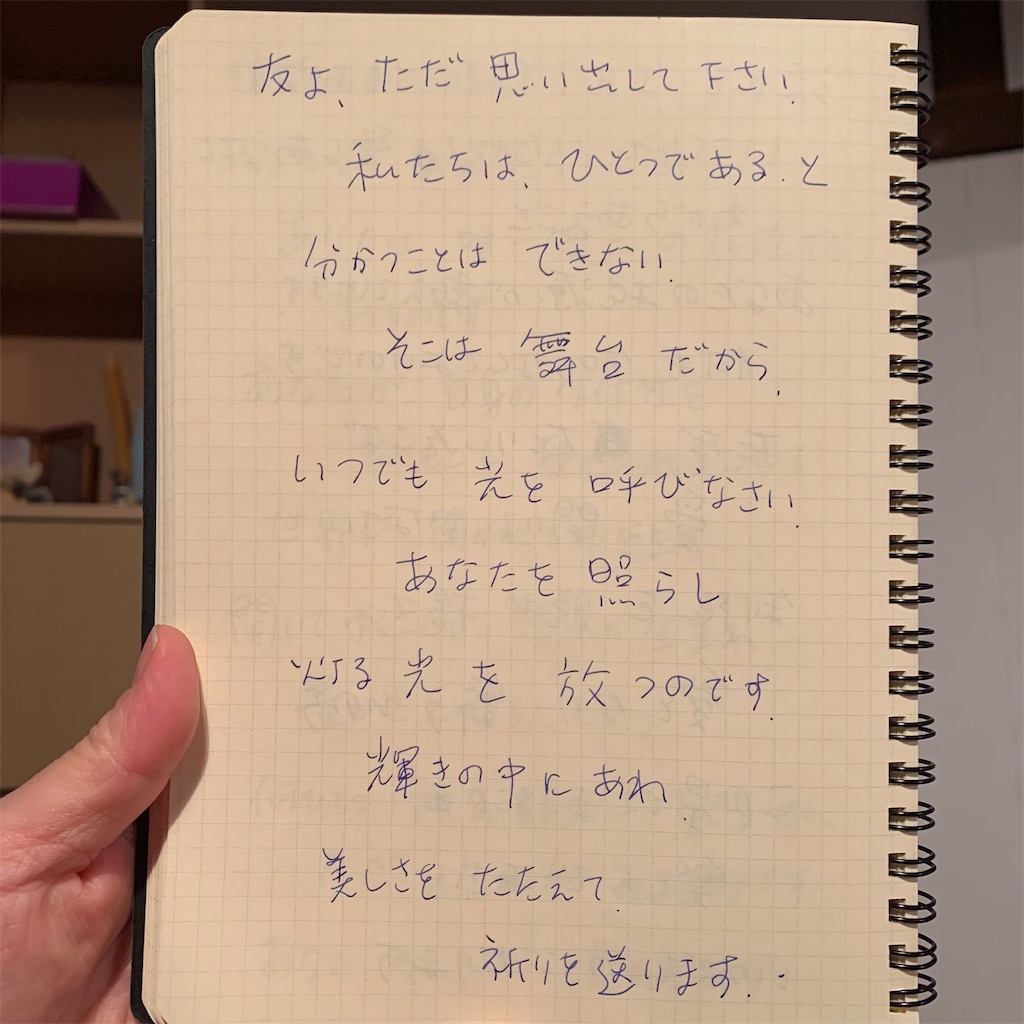 友よ、ただ 思い出して下さい.
私たちは、ひとつである.と
分かつことは できない.
そこは 舞台 だから.
いつでも 光を 呼びなさい.
あなたを 照らし
光 を 放つのです.
輝きの中に あれ.
美しさを たたえて.
祈りを送ります.